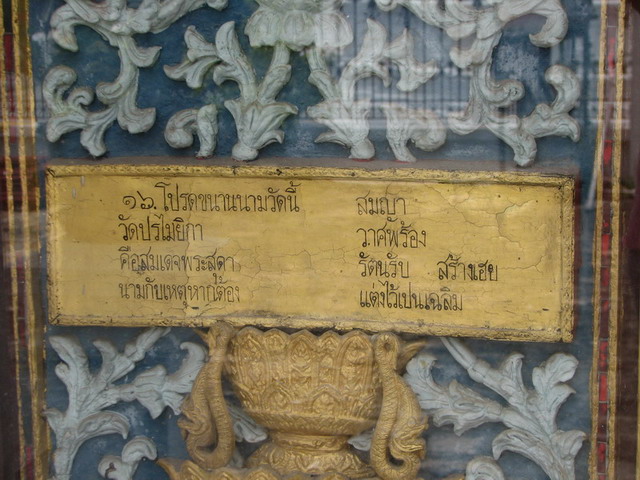 ๑๖. โปรดขนานนามวัดนี้ สมญา
วัดปรไมยิกา วาศพร้อง
คือสมเดจพระสุดา รัตนรับ สร้างเฮย
นามกับเหตุหากต้อง แต่งไว้เปนเฉลิม